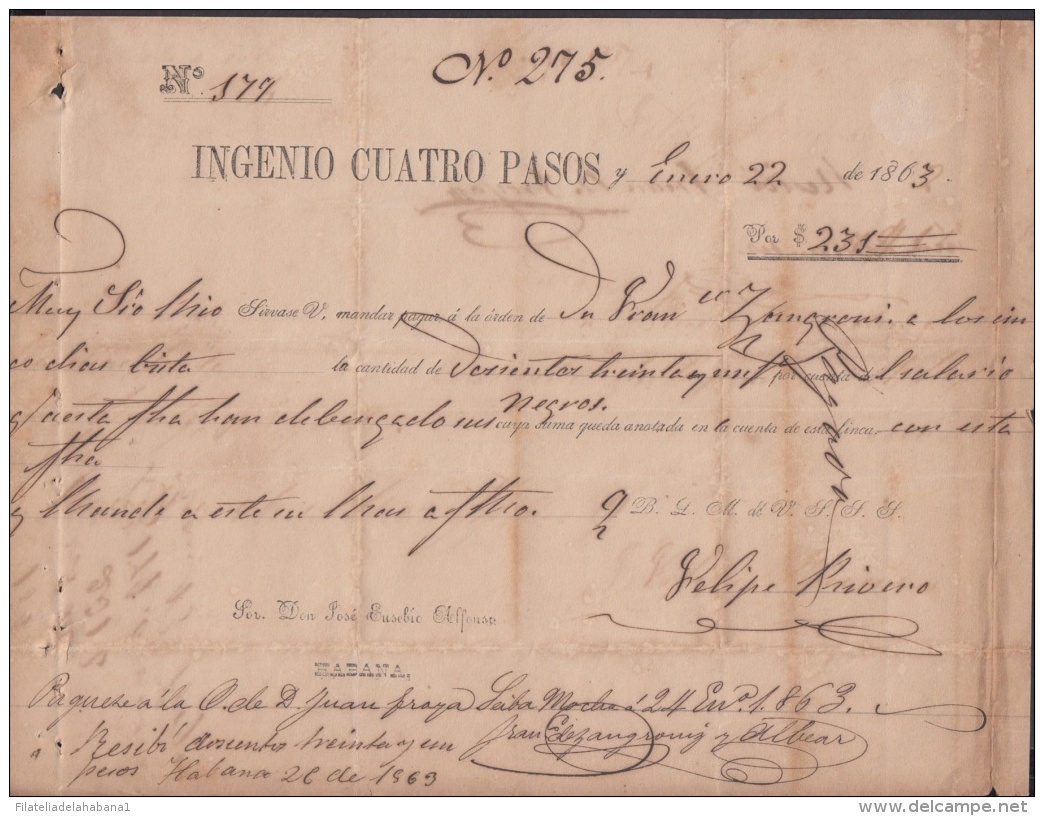 Nº 275.
Nº 179
INGENIO CUATRO PASOS y Enero 22 de 1863.
Por $ 231
Muy Sio Mio Sirvase V. mandar pagar á la órden de Dn Fran co a los cin
co dias bista la cantidad de Dosientos treinta y un por cuenta del salario
qe asta fha han debengado sus negros. cuya suma queda anotada en la cuenta de esta finca con esta
fha
y Mande a este su Mas aftto. q B. L. M. de V. S. S. S.
Felipe Rivero
Sor. Don José Eusebio Alfonso
HABANA
Paguese á la O. de D. Juan Seiba Mocha á 24 Eno. 1.863.
Resibí dosientos treinta y un
pesos Habana 26 de 1863
y Albear
Filateliadelahabana1
www.delcampe.net